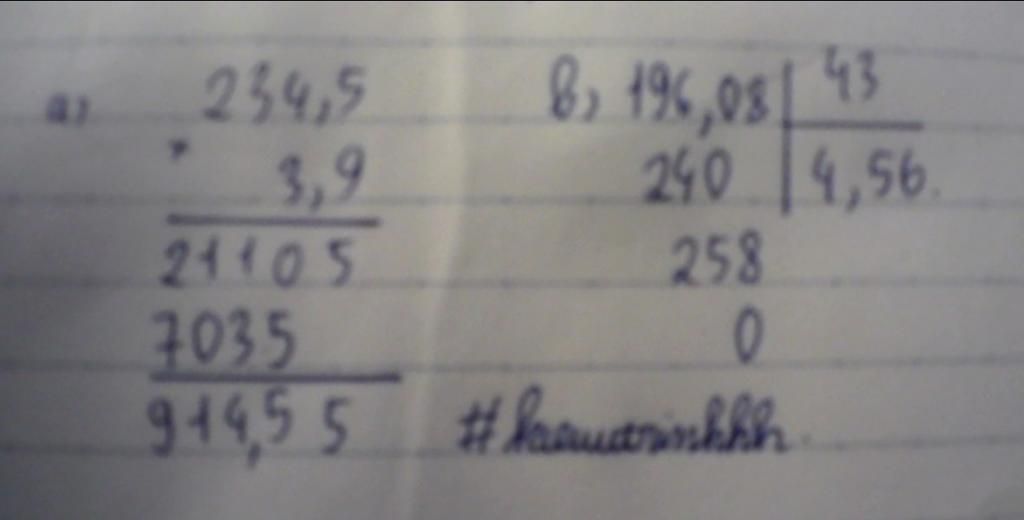 a, 234,5
× 3,9
21105
7035
914,55
b, 196,08 43
240 4,56
258
0